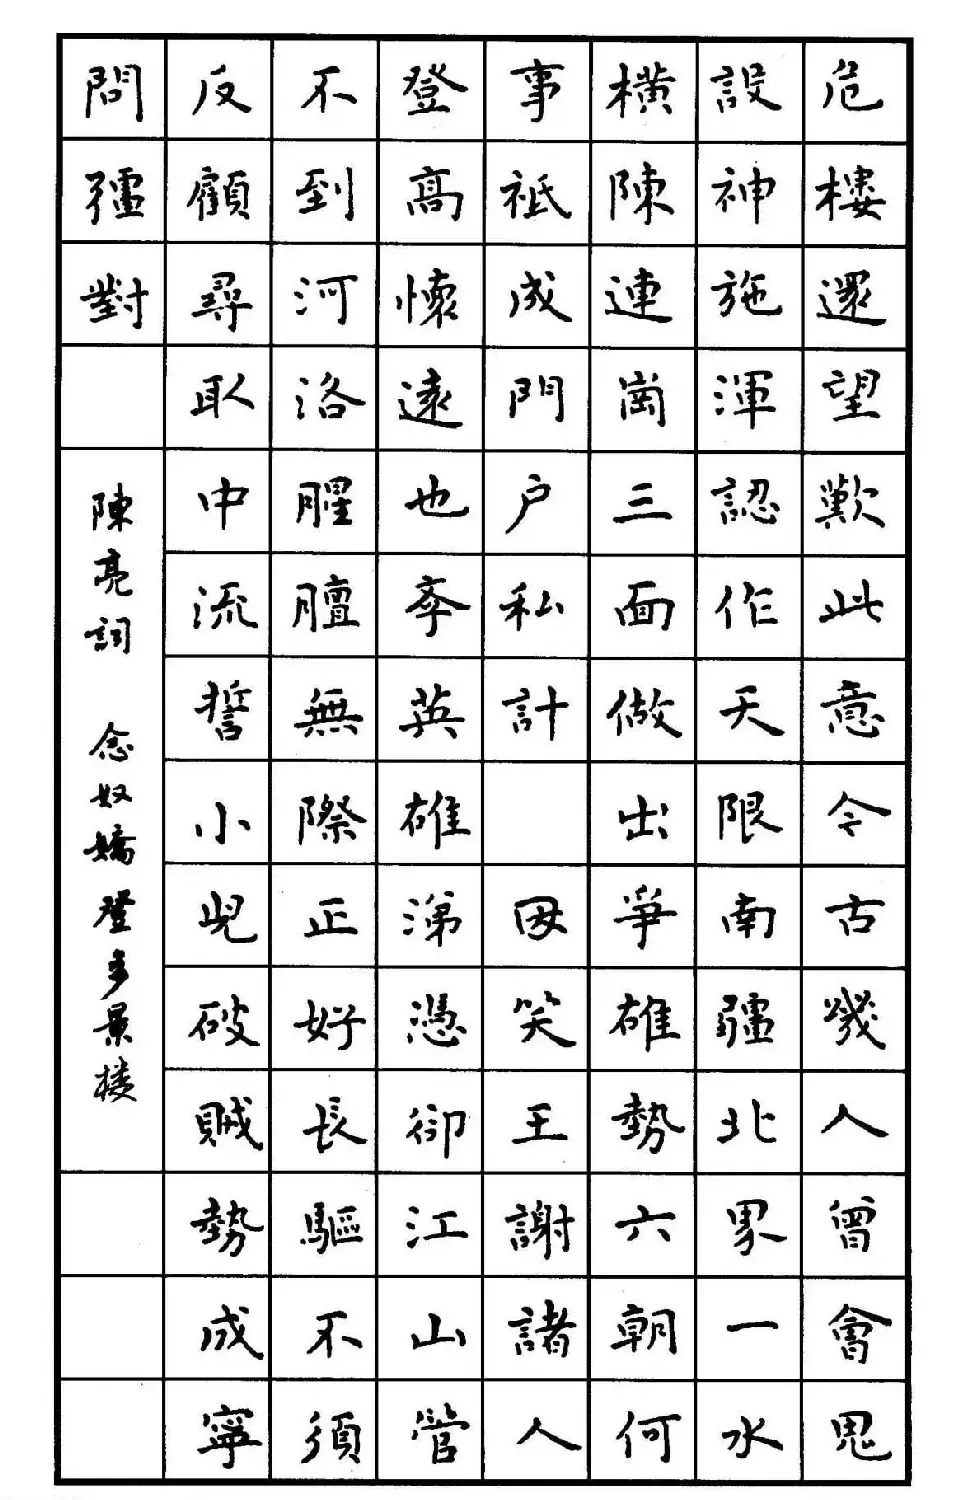 危樓還望歎此意今古幾人曾會鬼
設神施渾認作天限南疆北界一水
橫陳連崗三面做出爭雄勢六朝何
事祇成門户私計 因笑王謝諸人
登高懷遠也學英雄涕憑卻江山管
不到河洛腥膻無際正好長驅不須
反顧尋取中流誓小兒破賊勢成寧
問彊對
陳亮詞 念奴嬌 登多景楼